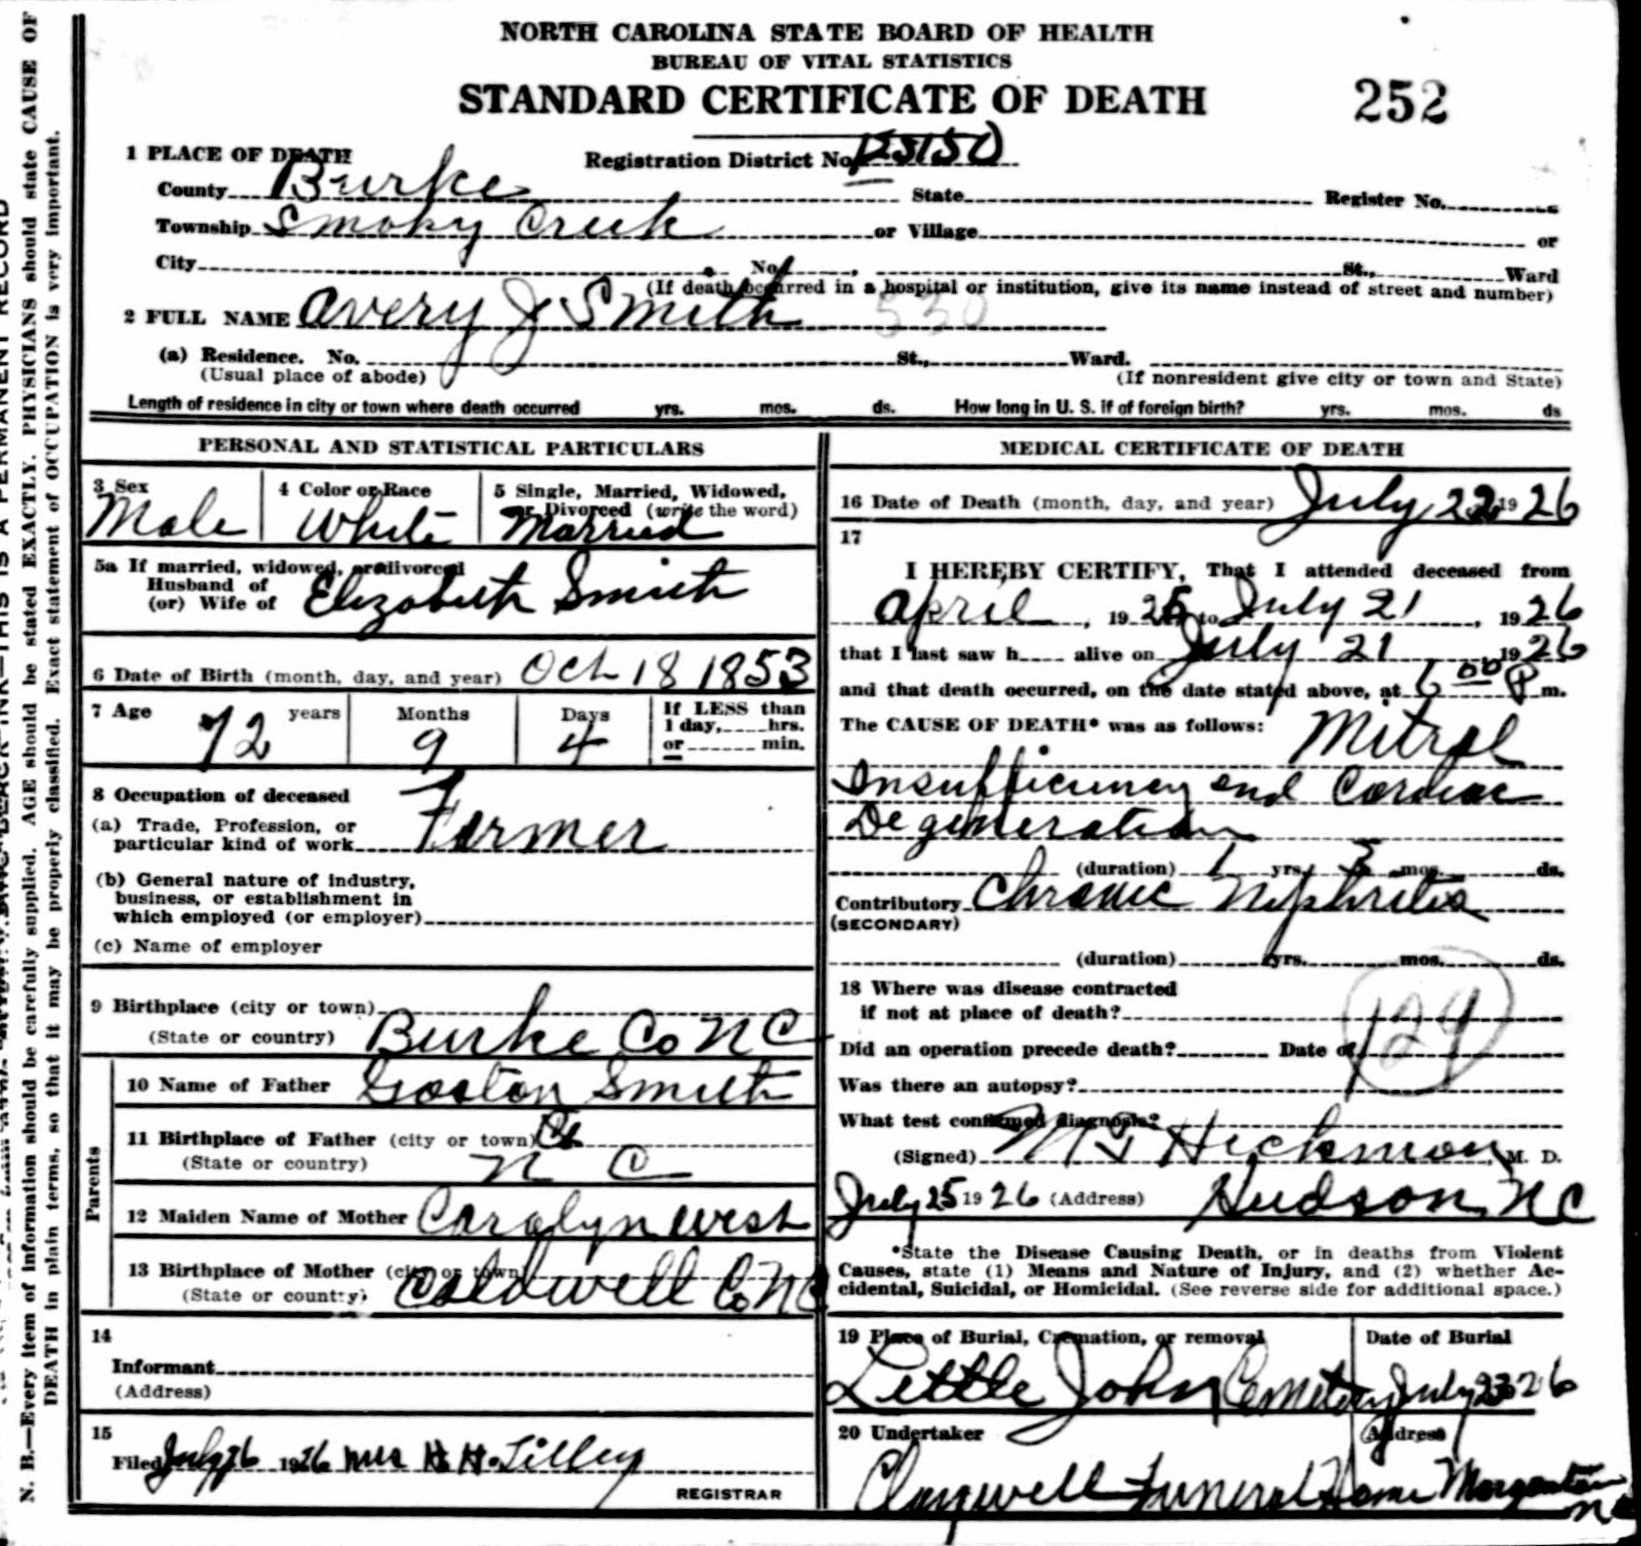 NORTH CAROLINA STATE BOARD OF HEALTH
BUREAU OF VITAL STATISTICS
STANDARD CERTIFICATE OF DEATH 252
1 PLACE OF DEATH Registration District No.
County Burke State Register No.
Township Smoky Creek or Village or
City No. St., Ward
(If death occurred in a hospital or institution, give its name instead of street and number)
2 FULL NAME Avery J Smith 530
(a) Residence. No. St., Ward.
(Usual place of abode) (If nonresident give city or town and State)
Length of residence in city or town where death occurred yrs. mos. ds. How long in U. S. if of foreign birth? yrs. mos. ds
PERSONAL AND STATISTICAL PARTICULARS
3 Sex 4 Color or Race 5 Single, Married, Widowed,
or Divorced (write the word)
Male White Married
5a If married, widowed, or divorced
Husband of
(or) Wife of Elizabeth Smith
6 Date of Birth (month, day, and year) Oct 18 1853
7 Age 72 years Months 9 Days 4 If LESS than
1 day, hrs.
or min.
8 Occupation of deceased
(a) Trade, Profession, or
particular kind of work Farmer
(b) General nature of industry,
business, or establishment in
which employed (or employer)
(c) Name of employer
9 Birthplace (city or town)
(State or country) Burke Co N C
Parents
10 Name of Father Gaston Smith
11 Birthplace of Father (city or town)
(State or country) N C
12 Maiden Name of Mother Carolyn West
13 Birthplace of Mother (city or town)
(State or country) Caldwell Co NC
14
Informant
(Address)
15
Filed July 26 1926 Mrs H. H. Tilley
REGISTRAR
MEDICAL CERTIFICATE OF DEATH
16 Date of Death (month, day, and year) July 22 1926
17
I HEREBY CERTIFY, That I attended deceased from
April, 1925 to July 21, 1926
that I last saw h alive on July 21 1926
and that death occurred, on the date stated above, at 6 00 P m.
The CAUSE OF DEATH* was as follows: Mitral
Insufficiency and Cardiac
Degeneration
(duration) 1 yrs. 3 mos. ds.
Contributory Chronic Nephritis
(SECONDARY)
(duration) yrs. mos. ds.
18 Where was disease contracted
if not at place of death?
Did an operation precede death? Date of
129
Was there an autopsy?
What test confirmed diagnosis?
(Signed) Hickman, M. D.
July 25 1926 (Address) Hudson, NC
*State the Disease Causing Death, or in deaths from Violent
Causes, state (1) Means and Nature of Injury, and (2) whether Ac-
cidental, Suicidal, or Homicidal. (See reverse side for additional space.)
19 Place of Burial, Cremation, or removal Date of Burial
Little John Cemetery July 23 26
20 Undertaker Address
Funeral Home Morganton
NC
N. B.—Every item of information should be carefully supplied. AGE should be stated EXACTLY. PHYSICIANS should state CAUSE OF
DEATH in plain terms, so that it may be properly classified. Exact statement of OCCUPATION is very important.